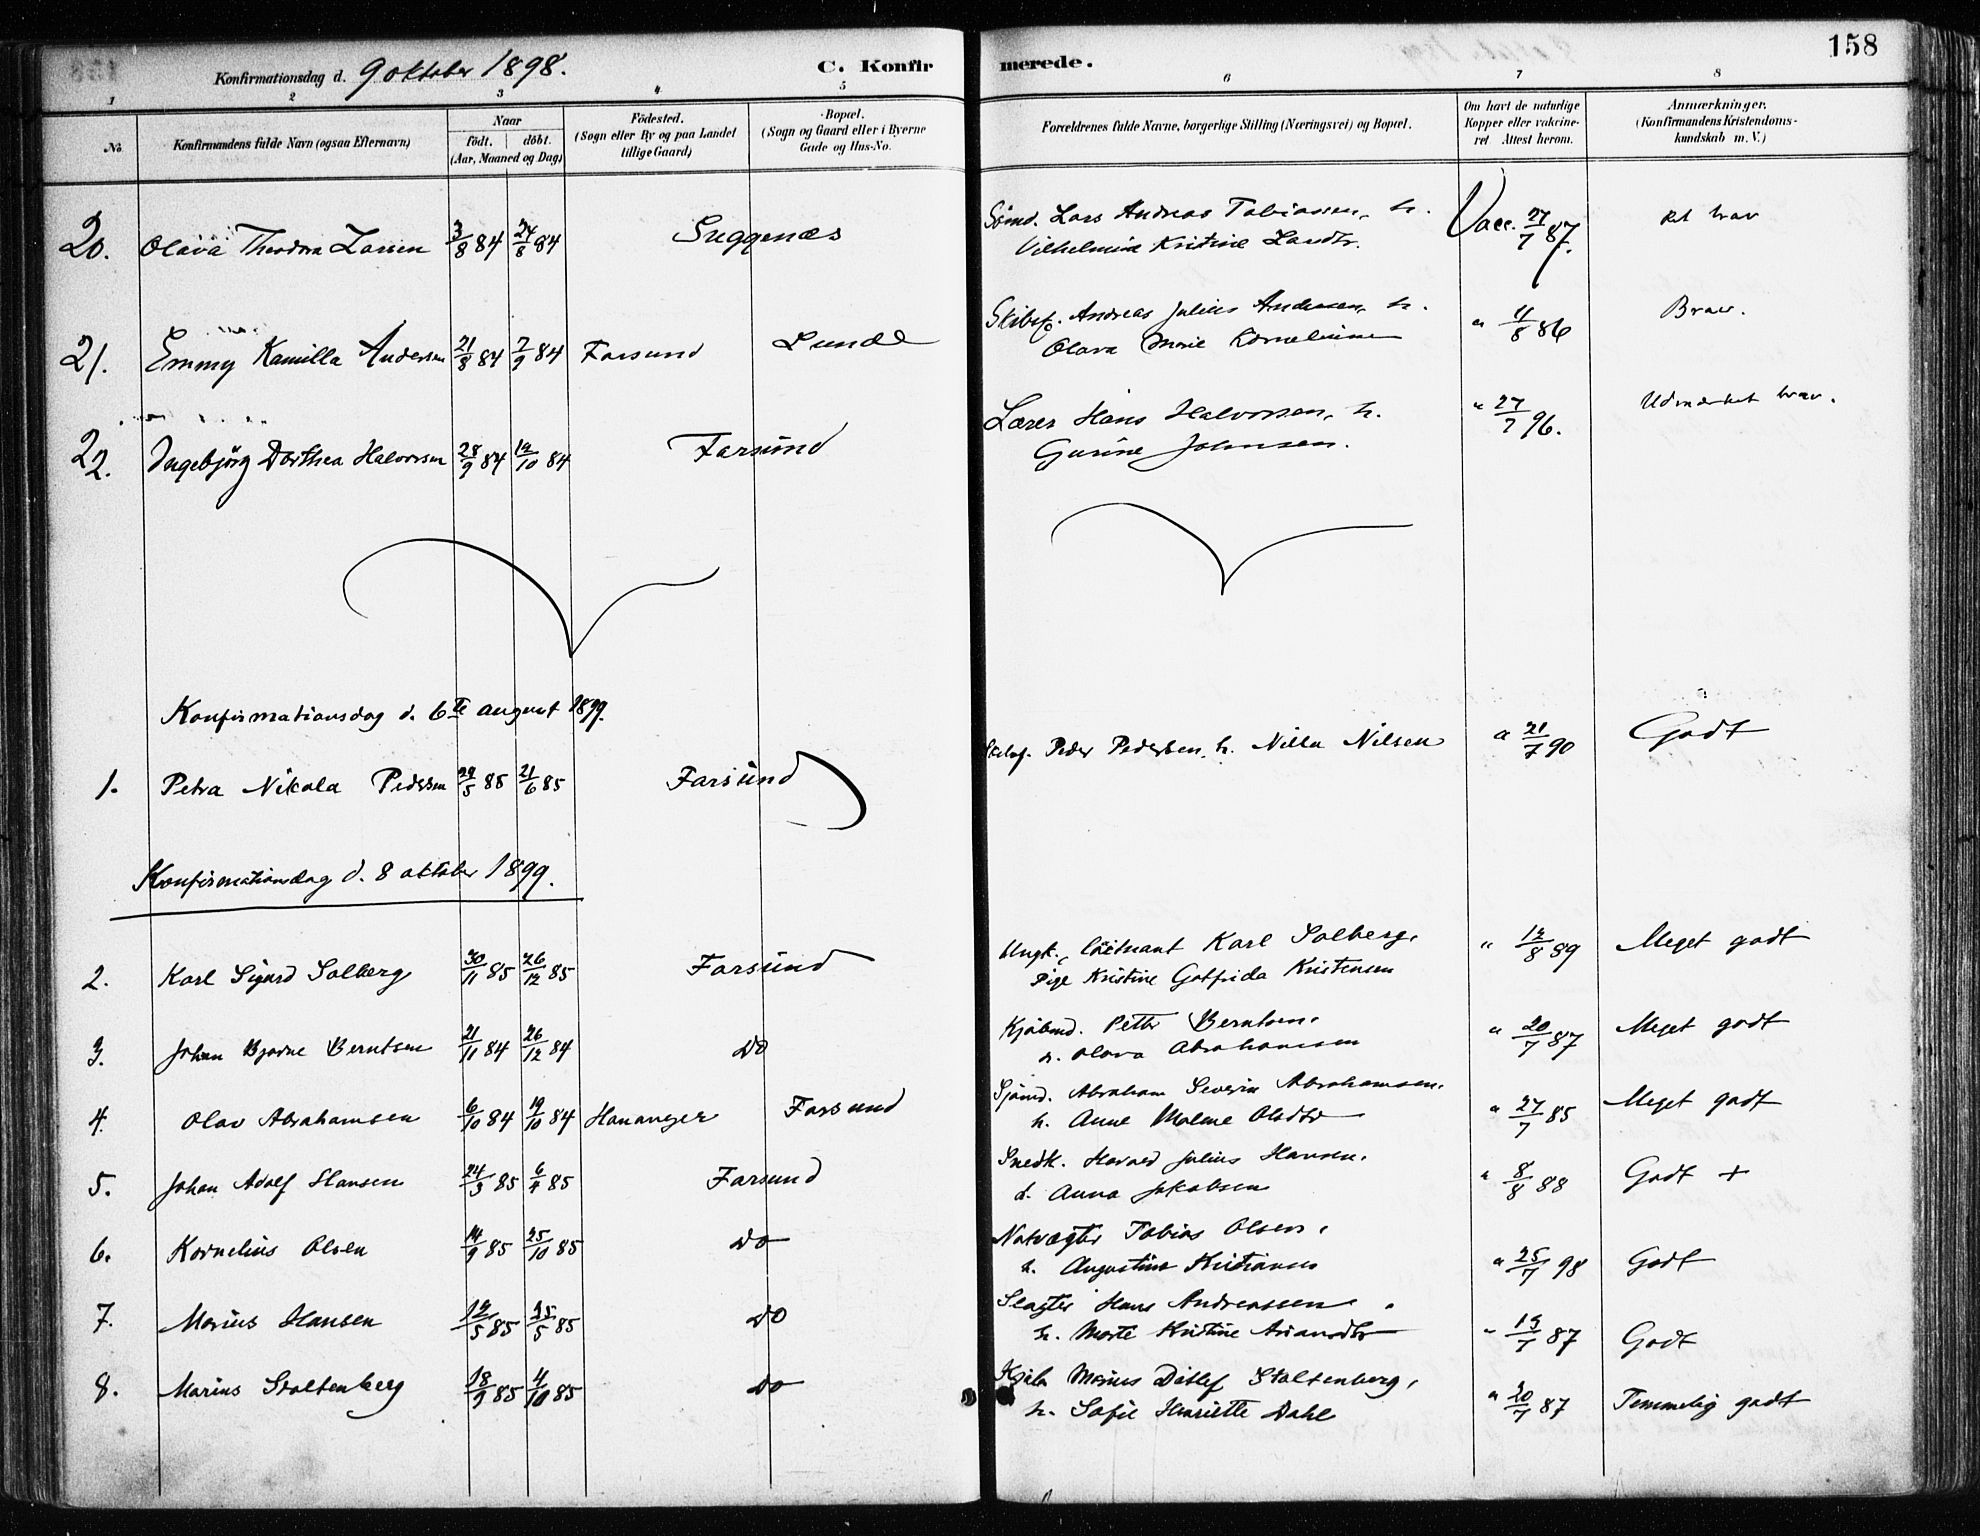 Konfirmationsdag d. 9 oktober 1898. C. Konfirmerede. 158
1 2 3 4 5 6 7 8
No. Konfirmandens fulde Navn (ogsaa Efternavn) Naar født. døbt. (Aar, Maaned og Dag) Fødested. (Sogn eller By og paa Landet tillige Gaard) Bopæl. (Sogn og Gaard eller i Byerne Gade og Hus-No. Forældrenes fulde Navne, borgerlige Stilling (Næringsvei) og Bopæl. Om havt de naturlige Kopper eller vakcineret Attest herom. Anmærkninger. (Konfirmandens Kristendomskundskab m. V.)
20. Olava Theodora Larsen 3/8 84 24/8 84 Suggenæs Sømd. Lars Andreas Tobiassen, h. Vacc. 27/7 87.
Vilhelmine Kristine Larsdtr.
21. Emmy Kamilla Andersen 21/8 84 7/9 84 Farsund Lunde Skibsf. Andreas Julius Andersen, h. " 11/8 86 Brav.
Olava Marie
22. Ingebjørg Dorthea Halvorsen 28/9 84 19/10 84 Farsund Lærer Hans Halvorsen, h. " 27/7 96. Udmærket brav.
Gurine Johnsen.
Konfirmationsdag d. 6te august 1899.
1. Petra Nikola Pedersen 29/5 85 21/6 85 Farsund Peder Pedersen, h. Nilla Nilsen " 21/7 90 Godt
Konfirmationsdag d. 8 oktober 1899.
2. Karl Sigurd Solberg 30/11 85 26/12 85 Farsund Ungk., Karl Solberg, " 12/8 89 Meget godt
Pige Kristine Gotfrida Kristensen
3. Johan Bjarne Berntsen 21/11 84 26/12 84 Do Kjøbmd. Petter Berntsen, " 20/7 87 Meget godt
h. Olava Abrahamsen
4. Olav Abrahamsen 6/10 84 19/10 84 Hananger Farsund Sjømd. Abraham Severin Abrahamsen, " 27/7 85 Meget godt
h. Anne Malme Olsdtr
5. Johan Adolf Hansen 24/3 85 6/4 85 Farsund Snedk. Harald Julius Hansen, " 8/8 88 Godt +
Anna Jakobsen
6. Kornelius Olsen 14/9 85 25/10 85 Do Natvægter Tobias Olsen, " 25/7 98 Godt
h. Augustine Kristiansen
7. Marius Hansen 85 25/5 85 Do Slagter Hans Andreassen, " 19/7 87 Godt
h. Marte Kristine
8. Marius Stoltenberg 18/9 85 4/10 85 Do Kjøbm Marius Ditlef Stoltenberg, " 20/7 87 Temmelig godt
h. Sofie Henriette Dahl